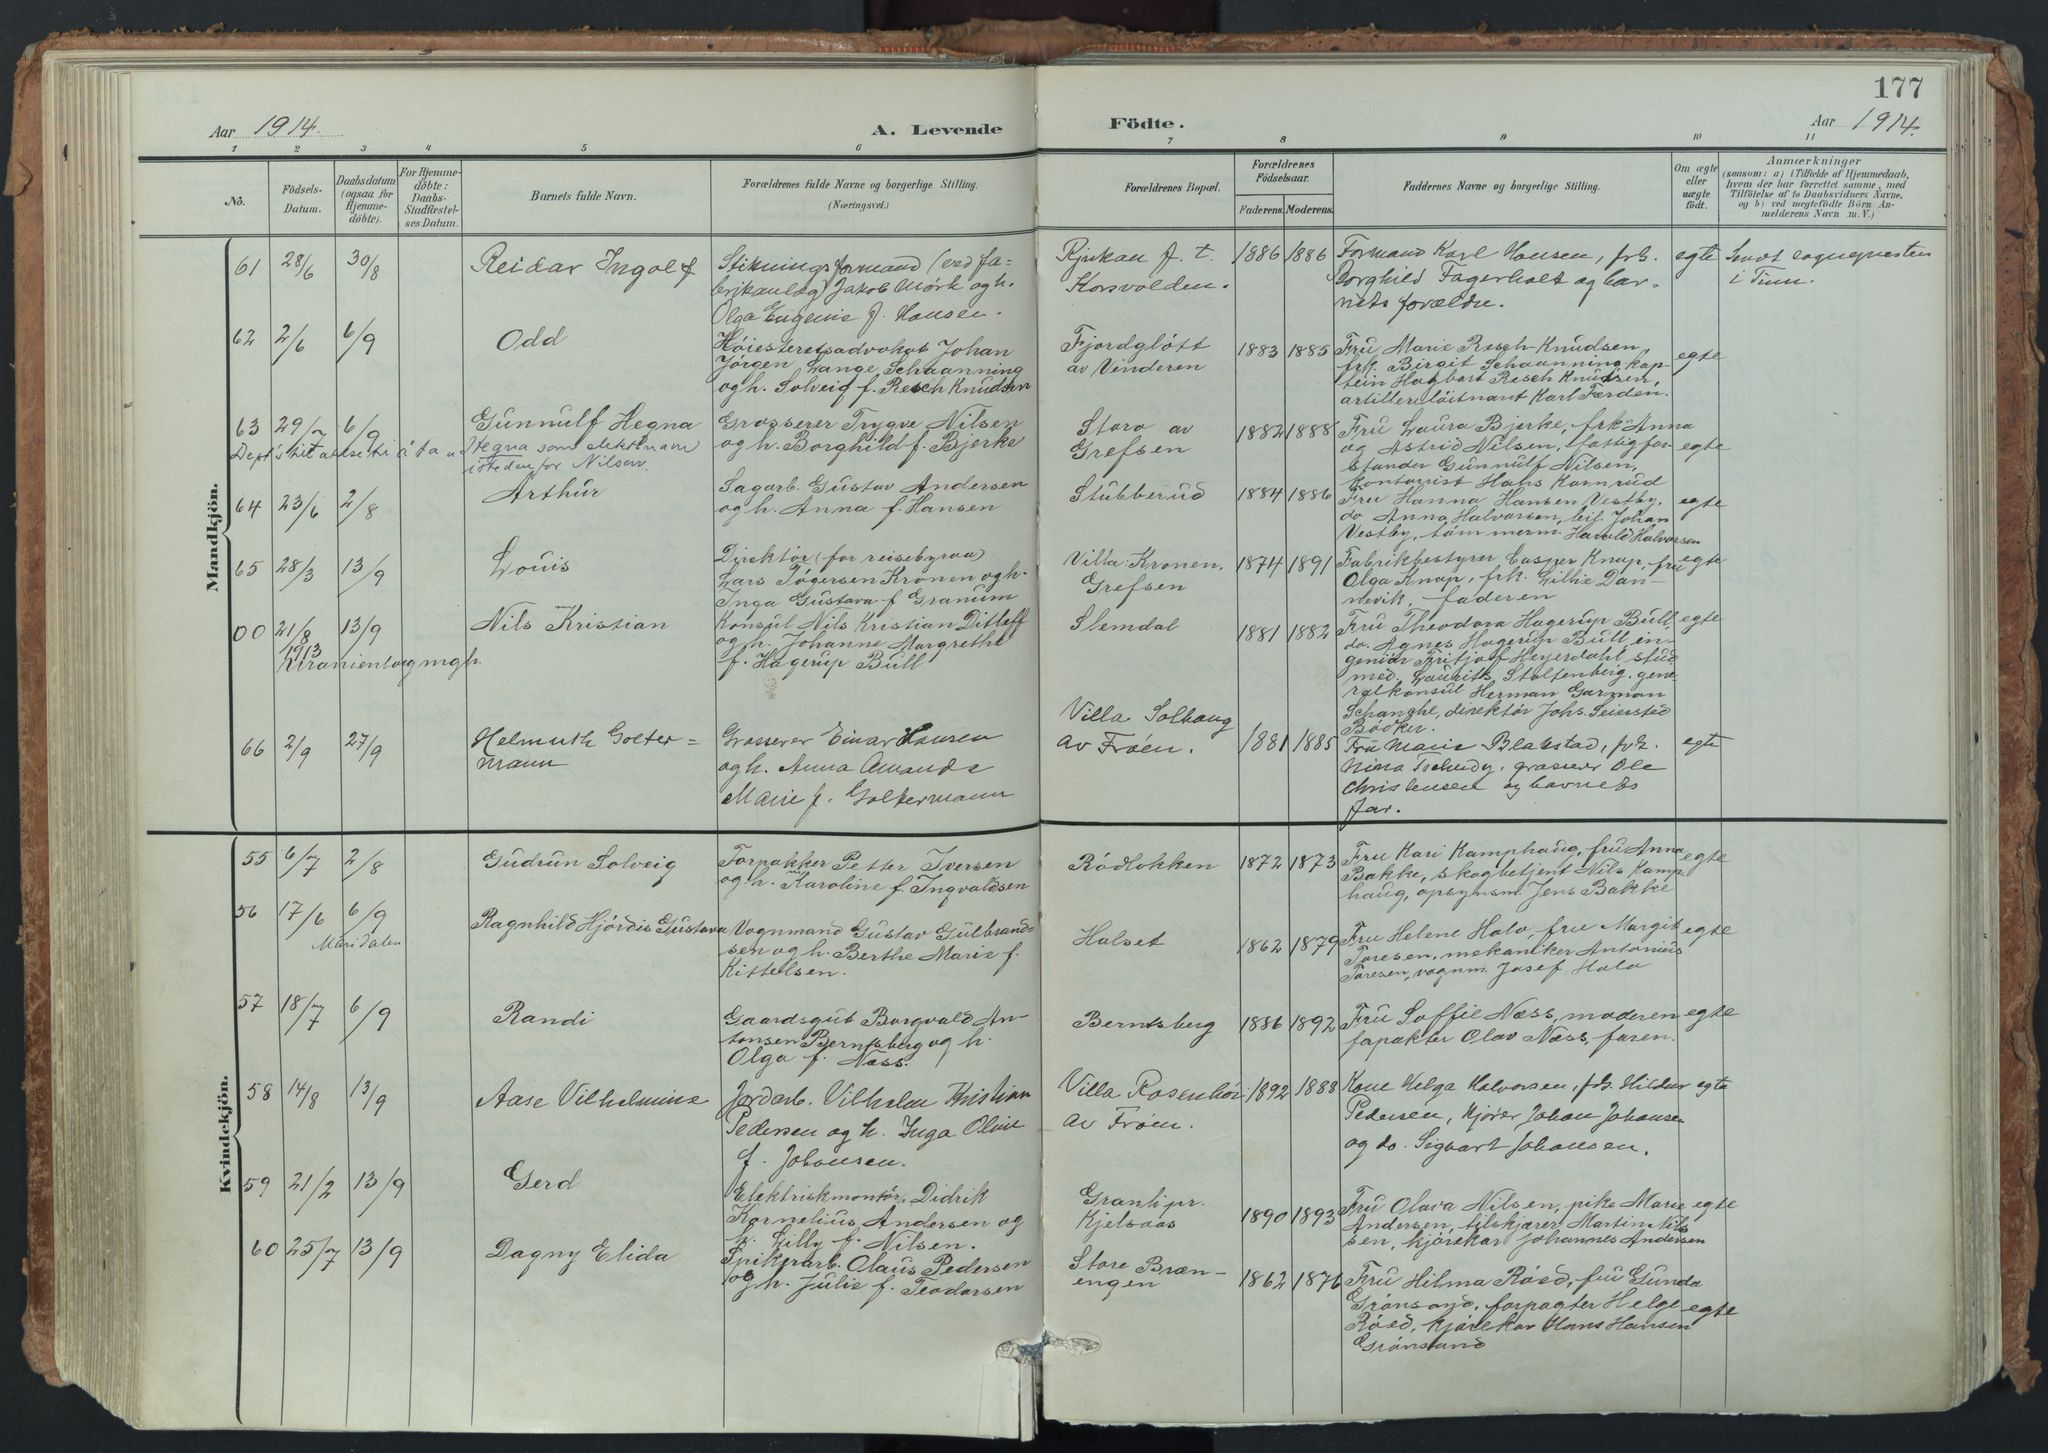 177
Aar 1914. A. Levende Födte. Aar 1914.
1 2 3 4 5 6 7 8 9 10 11
Nô. Födsels-Datum. Daabsdatum (ogsaa for Hjemme-döbte). For Hjemme-döbte: Daabs-Stadfæstel-ses Datum. Barnets fulde Navn. Forældrenes fulde Navne og borgerlige Stilling. (Næringsvei.) Forældrenes Bopæl. Forældrenes Födselsaar. Faderens. Moderens. Faddernes Navne og borgerlige Stilling. Om ægte eller uægte födt. Anmærkninger
(saasom: a) i Tilfælde af Hjemmedaab,
hvem der har forrettet samme, med
Tilföielse af to Daabsvidners Navne,
og b) ved uægtefödte Börn An-
melderens Navn m. V.)
Mandkjön.
61 28/6 30/8 Reidar Ingolf
Stikningsformand (ved fa-
brikanlæg) Jakob Mørk og h.
Olga Eugenie f. Hansen.
Rjukan f. t.
Korsvolden.
1886 1886
Formand Karl Hansen, frk.
Borghild Fagerholt og bar-
nets forældre.
egte
sognepresten
i Tinn.
62 2/6 6/9 Odd
Høiesteretsadvokat Johan
Jørgen Lange Schaanning
og h. Solveig f. Resch Knudsen
Fjordgløtt
av Vinderen
1883 1885
Fru Marie Resch-Knudsen,
frk. Birgit Schaanning, kap-
tein Hagbart Resch Knudsen,
artilleriløitnant Karl Færden.
egte
63 29/7 6/9 Gunnulf Hegna
Hegna som slektsnavn
istedenfor Nilsen.
Grosserer Trygve Nilsen
og h. Borghild f. Bjerke
Storo av
Grefsen
1882 1888
Fru Laura Bjerke, frk. Anna
og Astrid Nilsen, fattigfor-
stander Gunnulf Nilsen,
kontorist Hans Kornrud
egte
64 23/6 2/8 Arthur
Sagarb. Gustav Andersen
og h. Anna f. Hansen
Stubberud
1884 1886
Fru Hanna Hansen Vestby,
do. Anna Halvorsen, Johan
Vestby, tømmerm. Harald Halvorsen
egte
65 28/3 13/9 Louis
Direktør (for reisebyraa)
Lars Tøgersen Kronen og h.
Inga Gustava f. Granum
Villa Kronen,
Grefsen
1874 1891
Fabrikbestyrer Casper Knap, fru
Olga Knap, frk. Lillie Dan-
nevik, faderen
egte
00 21/8 1913 13/9 Nils Kristian
Uranienborg mgh.
Konsul Nils Kristian Ditleff
og h. Johanne Margrethe
f. Hagerup Bull
Slemdal
1881 1882
Fru Theodora Hagerup Bull,
do. Agnes Hagerup Bull, in-
geniør Fritjof Heyerdahl, stud.
med. Laurits Stoltenberg, gene-
ralkonsul Herman Garman
Schanche, direktør Johs. Seiersted
Bødker.
egte
66 2/9 27/9 Helmuth Golter=
mann
Grosserer Einar Hansen
og h. Anna Amanda
Marie f. Goltermann
Villa Solhaug
av Frøen.
1881 1885
Fru Marie Blakstad, frk.
Nina Tschudy, grosserer Ole
Christensen og barnets
far.
egte
Kvindekjön.
55 6/7 2/8 Gudrun Solveig
Forpakter Petter Iversen
og h. Karoline f. Ingvaldsen
Rødlokken
1872 1873
Fru Kari Kamphaug, fru Anna
Bakke, skogbetjent Nils Kamp-
haug, opsynsm. Jens Bakke
egte
56 17/6 6/9 Ragnhild Hjørdis Gustava
Maridalen
Vognmand Gustav Gulbrand-
sen og h. Berthe Marie f.
Kittelsen.
Halset
1862 1879
Fru Helene Holo, fru Margit
Toresen, mekaniker Antonius
Toresen, vognm. Josef Holo
egte
57 18/7 6/9 Randi
Gaardsgut Borgvald An-
tonsen Berntsberg og h.
Olga f. Næss.
Berntsberg
1886 1892
Fru Soffie Næss, moderen
fopakter Olav Næss, faren.
egte
58 14/8 13/9 Aase Vilhelmine
Jordarb. Vilhelm Kristian
Pedersen og h. Inga Olvie
f. Johansen.
Villa Rosenhøi
av Frøen.
1892 1888
Kone Helga Halvorsen, frk. Hildur
Pedersen, kjører Johan Johansen
og do. Sigvart Johansen.
egte
59 21/2 13/9 Gerd
Elektriskmontør. Didrik
Kornelius Andersen og
h. Lilly f. Nilsen.
Granli pr.
Kjelsaas
1890 1893
Fru Olava Nilsen, pike Marie
Andersen, tilskjærer Martin Nil-
sen, kjørekar Johannes Andersen
egte
60 25/7 13/9 Dagny Elida
Spikerarb. Olaus Pedersen
og h. Julie f. Teodorsen
Store Bræn-
engen
1862 1876
Fru Hilma Røed, fru Gunda
Grønsand, forpagter Helge
Røed, kjørekar Hans Hansen
Grønsand
egte